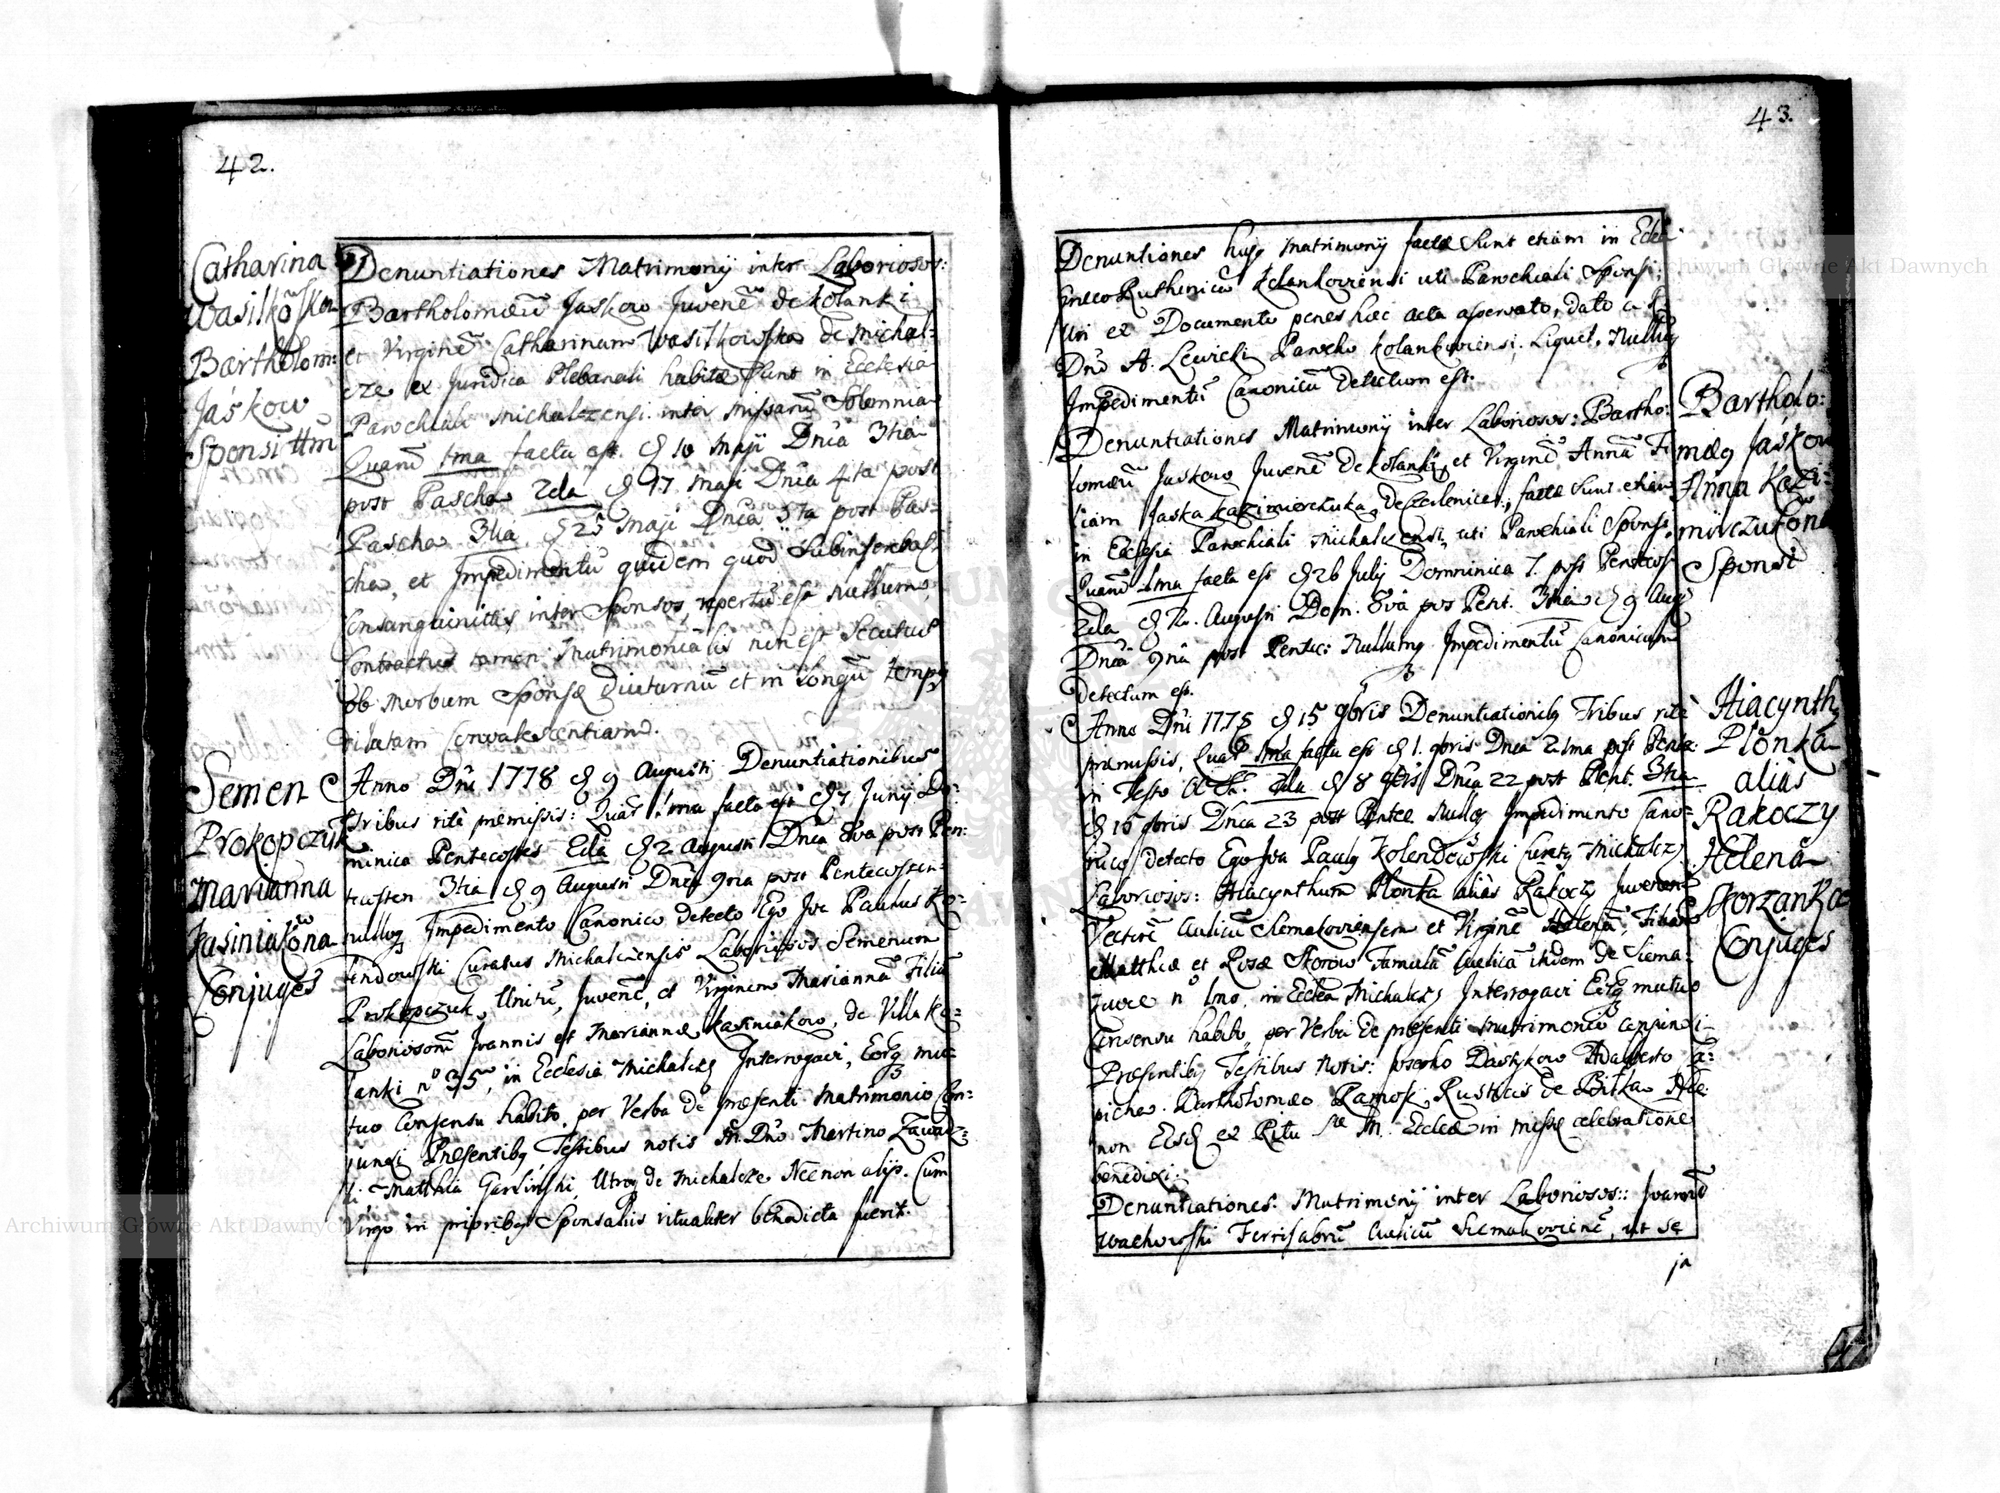 42.
Catharina
Wasilkõska
Bartholom:
Jaśkow
Sponsi
Denuntiationes Matrimonij inter Laboriosos:
Bartholomæũ Jaskow Juvenẽ de Kolanki
et Virginẽ Catharinam Wasilkowska de Michal=
cze ex Juridica Plebanali habitæ sunt in Ecclesia
Parochiali Michalczensi inter Missarũ Solemnia
Quarũ 1ma facta est. d 10 Maji Dnĩca 3tia
post Pascha 2da d 17 Maji Dnĩca 4ta post
Pascha 3tia d Maji Dnĩca 5ta post Pas=
cha, et Impedimentũ quidem quod
Consanguinitatis inter Sponsos repertũ est nullum,
Contractus tamen Matrimonialis non est Secutus
ob Morbum Sponsæ diuturnũ et in longũ tempus
Convalescentiam.
Semen
Prokopczuk
Marianna
Kasiniakõna
Conjuges
Anno Dñi 1778 d 9 Augusti Denuntiationibus
Tribus ritè præmissis: Quarũ 1ma facta est d 7 Junij Do=
minica Pentecostes 2da d 2 Augusti Dnĩca 8va post Pen=
tecosten 3tia d 9 Augusti Dnĩca 9na post Pentecosten
nulloq Impedimento Canonico detecto Ego Paulus Ko=
lendowski Curatus Michalczensis Laboriosos Semenum
Prokopczuk, Unitũ, Juvenẽ, et Virginem Mariannã Filiã
Laboriosorũ Joannis et Mariannæ Kasiniakow, de Villa Ko=
lanki nº 35, in Ecclesia Michalcz Interrogavi, Eorq mu=
tuo Consensu habito, per Verba de præsenti Matrimonio Con=
junxi Præsentibq Testibus notis M. Dño Martino Zawadz=
ki Matthia Garliński, Utroq de Michalcze Necnon alijs. Cum
Virgo in prioribq Sponsalijs ritualiter benedicta fuerit.
43.
Denuntiones hujq Matrimonij factæ sunt etiam in Eccla
Græco Rutheniĉ Kolankoviensi uti Parochiali Sponsi:
Uti ex Documento penes hæc acta asservato, dato a
Dnõ A. Lewicki Parocho Kolankoviensi. Liquet. Nullumq
Impedimentũ Canonicũ detectum est.
Bartholo:
mæq Jaśkow
Anna Kazi=
mirczukõna
Sponsi
Denuntiationes Matrimonij inter Laboriosos: Bartho:
lomæũ Jaskow Juvenẽ de Kolanki, et Virginẽ Annã Fi
liam Jaska Kazimierczuka de Czerlenice, factæ sunt etiam
in Ecclesia Parochiali Michalczensi, uti Parochiali Sponsi,
Quarũ 1ma facta est d 26 Julij Dominica 7. post Pentecost
2da d 2. Augusti Dom. 8va post Pent. 3tia d 9 Aug
Dnĩca 9na post Pentec: Nullumq Impedimentũ Canonicum
detectum est.
Hiacynthq
Płonka
aliàs
Rakoczy
Helena
Skorzanka
Conjuges
Anno Dñi 1778 d 15 9bris Denuntiationibq Tribus ritè
præmissis, Quarũ 1ma facta est d 1. 9bris Dnĩca 21ma post Pentec:
in Festo 2da d 8 9bris Dnĩca 22 post Pent. 3tia
d 15 9bris Dnĩca 23 post Pentec Nulloq Impedimento Cano=
nico detecto Ego Paulq Kolendowski Curatq Michalcz
Laboriosos: Hiacynthum Płonka aliàs Rakoczy Juvenem
Vectorẽ Aulicũ Siemakoviensem et Virginẽ Helenã, Filiã
Matthiæ et Rosæ Skorow Famulã Aulicã itidem de Siema=
kowce nº 1mo, in Eccla Michalcz Interrogavi Eorq mutuo
Consensu habito, per Verba de præsenti Matrimonio conjunxi
Præsentibq Testibus Notis: Josepho Dawykow Adalberto Ła=
picha Bartholomæo Ramosk Rusticis de Piłka
non Eosd ex Ritu Stæ M. Ecclæ in Missæ celebratione
benedixi.
Denuntiationes Matrimonij inter Laboriosos:: Joannẽ
Wachowski Ferrifabrũ Aulicũ Siemakoviensẽ, ut se
ja
Archiwum Główne Akt Dawnych
Archiwum Główne Akt Dawnych